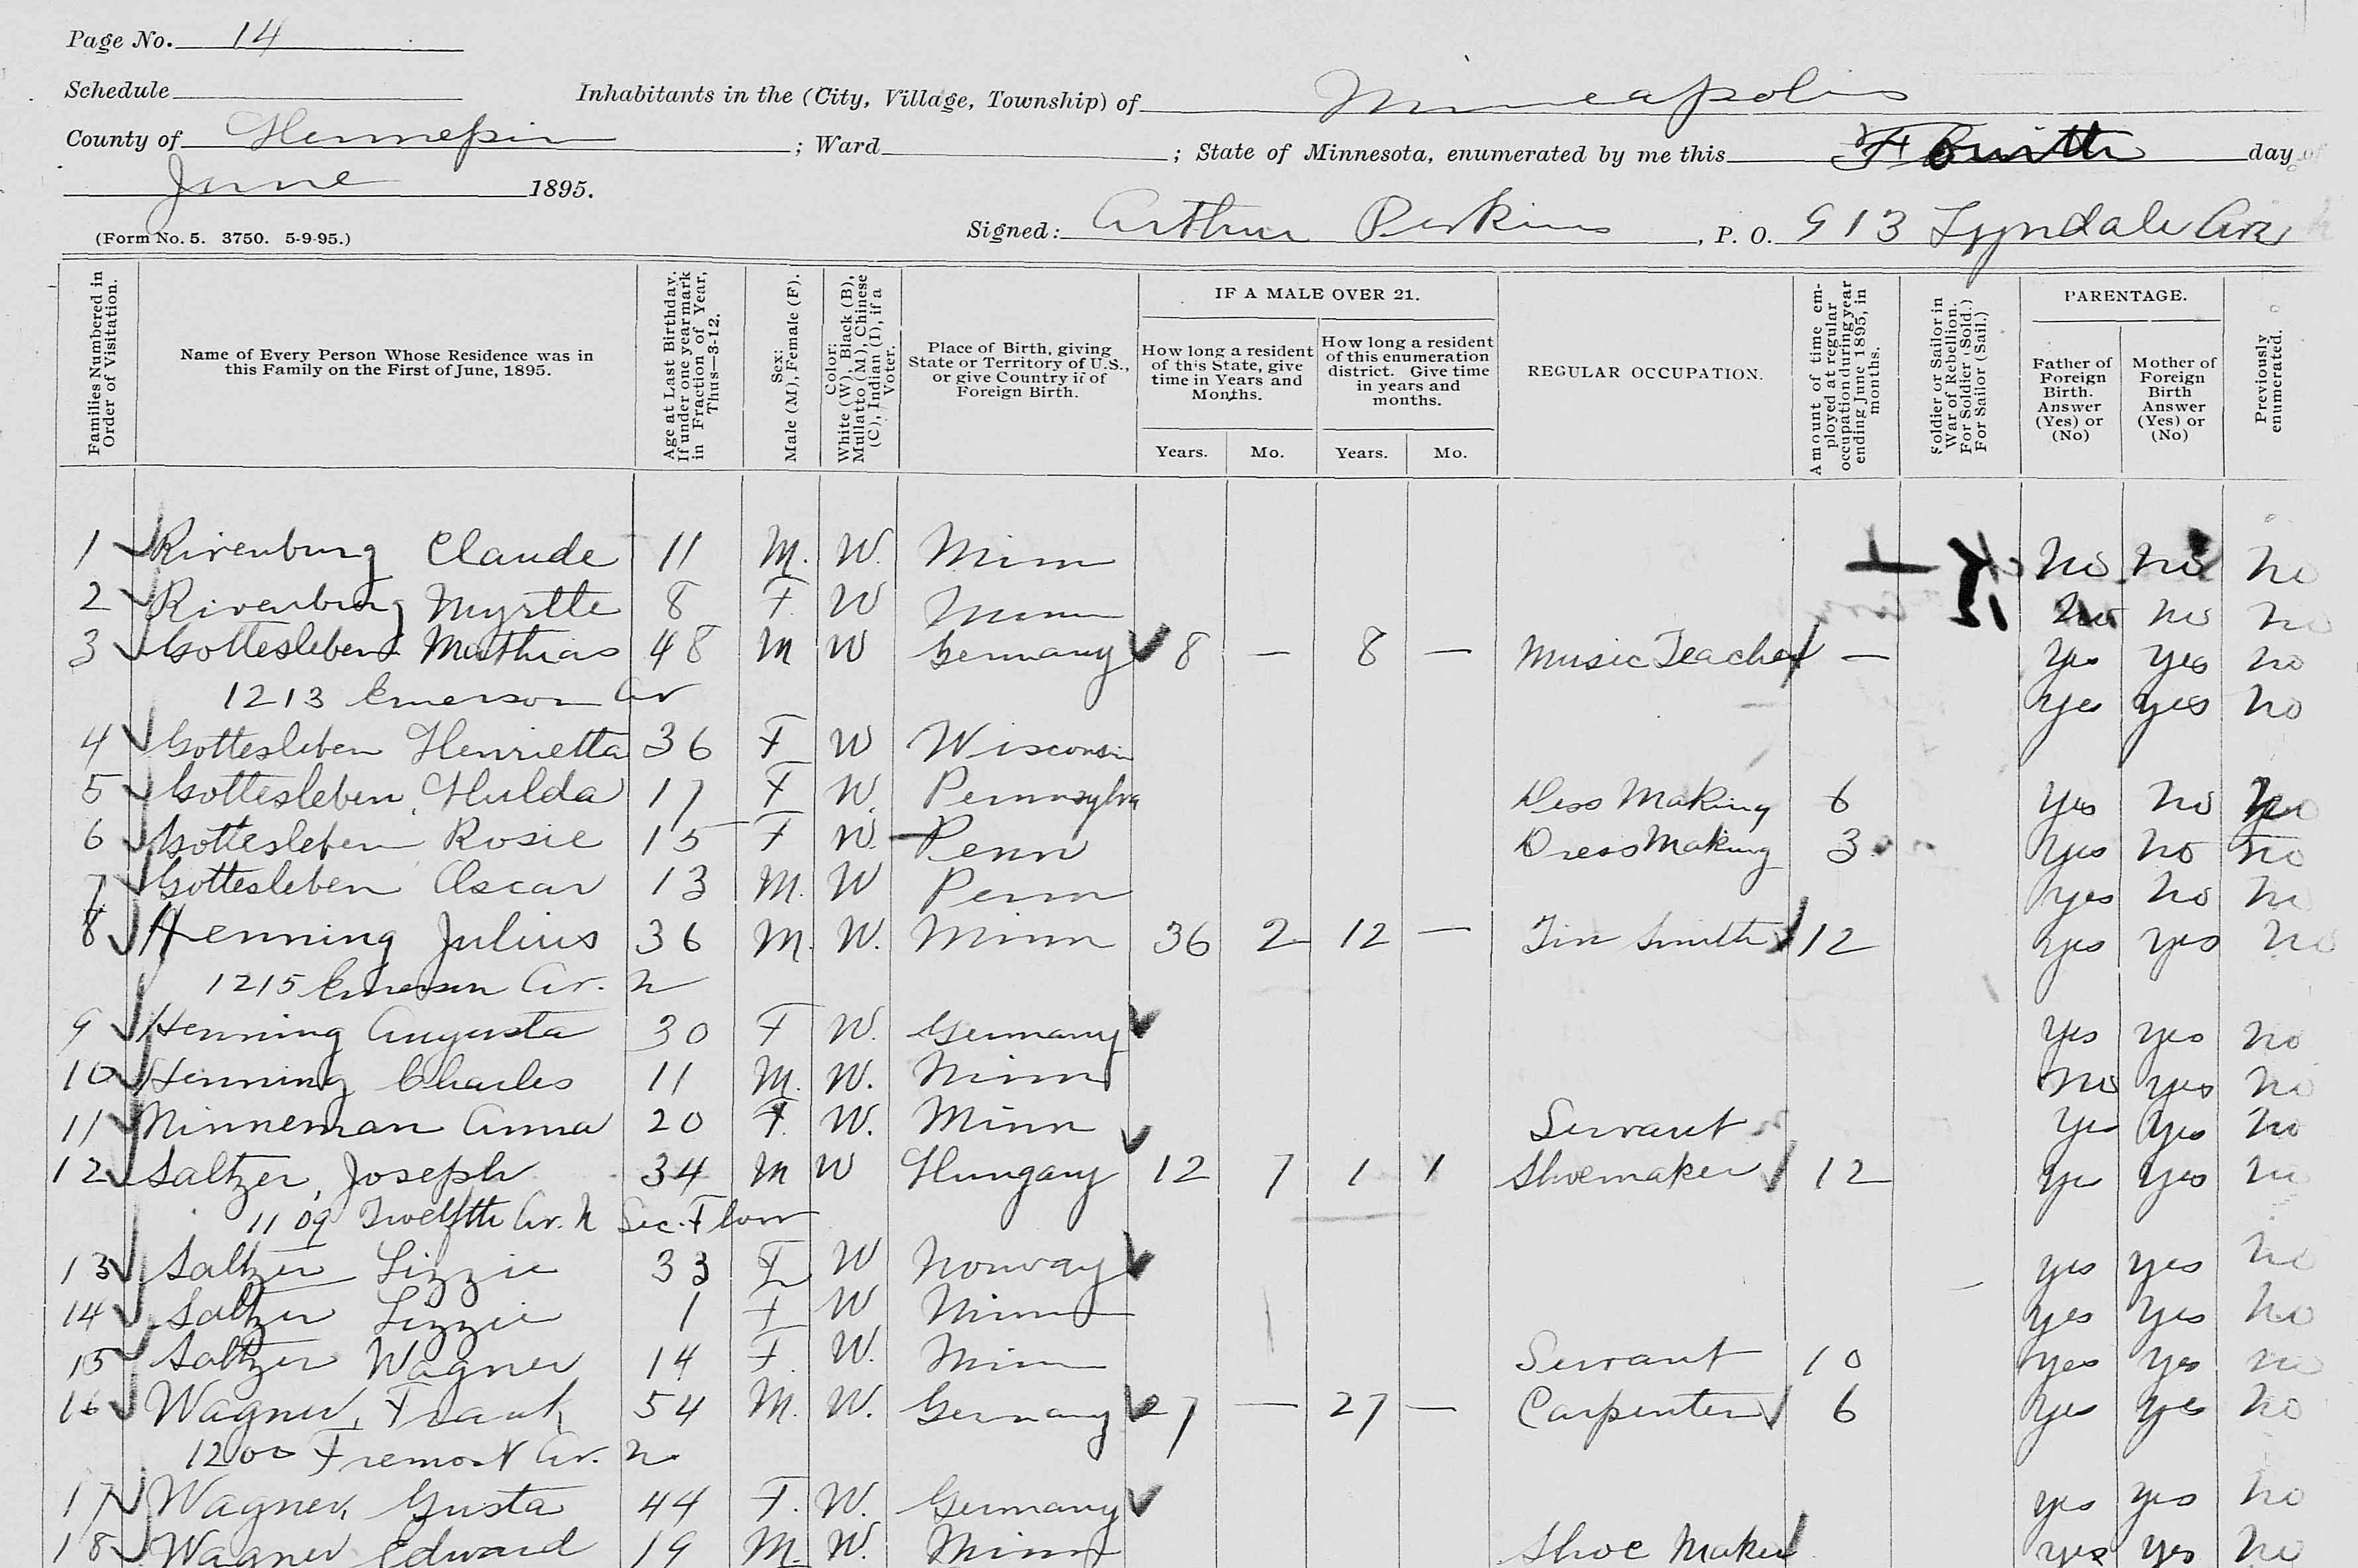 Page No. 14
Schedule
Inhabitants in the (City, Village, Township) of Minneapolis
County of Hennepin ; Ward ; State of Minnesota, enumerated by me this Fourth day of
June 1895.
(Form No. 5. 3750. 5-9-95.)
Signed: Arthur Perkins, P. O. 913 Lyndale Av N
Families Numbered in Order of Visitation.
Name of Every Person Whose Residence was in this Family on the First of June, 1895.
Age at Last Birthday. If under one year mark in Fraction of Year, Thus—3-12.
Sex: Male (M), Female (F).
Color: White (W), Black (B), Mullatto (M), Chinese (C), Indian (I), if a Voter.
Place of Birth, giving State or Territory of U.S., or give Country if of Foreign Birth.
IF A MALE OVER 21.
How long a resident of this State, give time in Years and Months.
How long a resident of this enumeration district. Give time in years and months.
Years. Mo. Years. Mo.
REGULAR OCCUPATION.
Amount of time employed at regular occupation during year ending June 1895, in months.
Soldier or Sailor in War of Rebellion. For Soldier (Sold.) For Sailor (Sail.)
PARENTAGE.
Father of Foreign Birth. Answer (Yes) or (No)
Mother of Foreign Birth Answer (Yes) or (No)
Previously enumerated.
1 Rivenburg Claude 11 M. W. Minn No No No
2 Rivenburg Myrtle 8 F. W Minn No No No
3 Gottesleben Mathias 48 M W Germany 8 — 8 — Music Teacher — Yes Yes No
1213 Emerson Av Yes Yes No
4 Gottesleben Henrietta 36 F W Wisconsin
5 Gottesleben, Hulda 17 F W. Pennsylva Dess Making 6 Yes No No
6 Gottesleben Rosie 15 F W. Penn Dress Making 3 Yes No No
7 Gottesleben Oscar 13 M. W Penn Yes No No
8 Henning Julius 36 M. W. Minn 36 2 12 — Tin Smith 12 Yes Yes No
1215 Emerson Av. N
9 Henning Augusta 30 F W. Germany Yes Yes No
10 Henning Charles 11 M. W. Minn No Yes No
11 Ninneman Anna 20 F. W. Minn Servant Yes Yes No
12 Saltzer, Joseph 34 M W Hungary 12 7 1 1 Shoemaker 12 Yes Yes No
1109 Twelfth Av. N Sec. Floor
13 Saltzer Lizzie 33 F W Norway Yes Yes No
14 Saltzer Lizzie 1 F W Minn Yes Yes No
15 Saltzer Wagner 14 F. W. Minn Servant 10 Yes Yes No
16 Wagner, Frank 54 M. W. Germany 27 — 27 — Carpenter 6 Yes Yes No
1200 Fremont Av. N.
17 Wagner, Gusta 44 F. W. Germany Yes Yes No
18 Wagner Edward 19 M. W. Minn Shoe Maker Yes Yes No